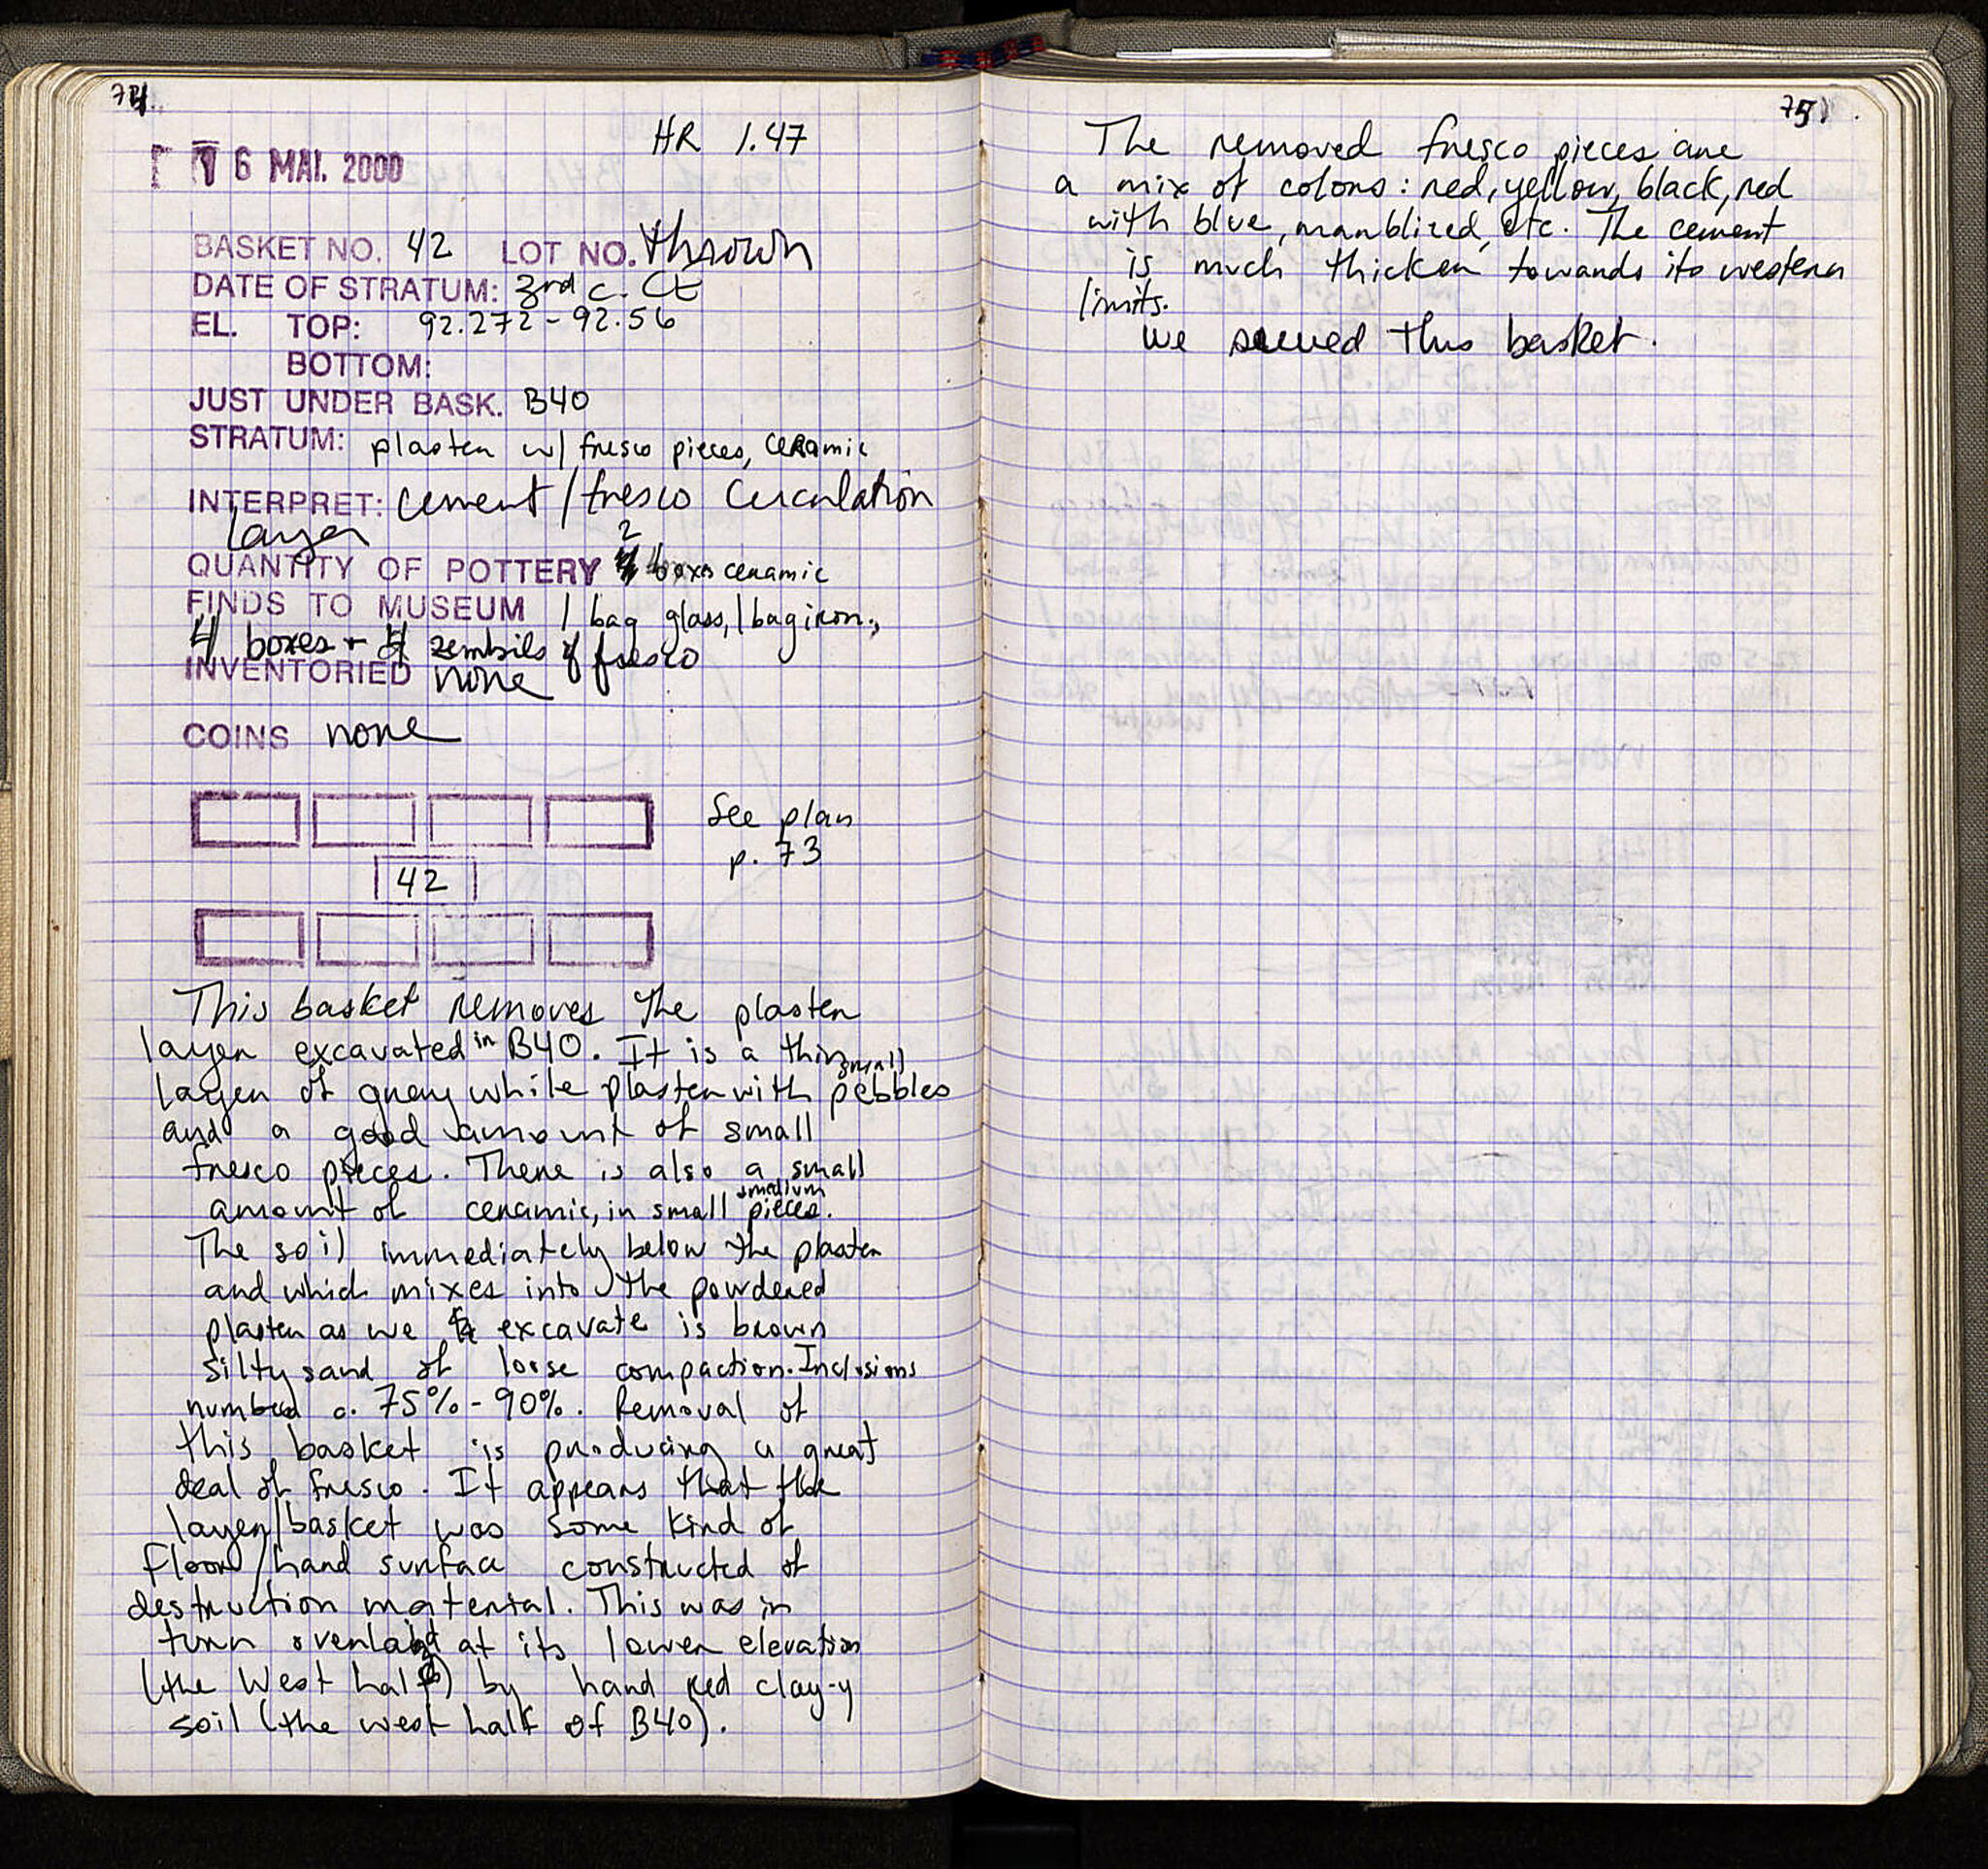 74
HR 1.47
16 MAI. 2000
BASKET NO. 42 LOT NO. thrown
DATE OF STRATUM: 3rd c. CE
EL. TOP: 92.272 - 92.56
BOTTOM:
JUST UNDER BASK. B40
STRATUM: plaster w/ fresco pieces, ceramic
INTERPRET: cement/fresco circulation
layer
QUANTITY OF POTTERY 2 boxes ceramic
FINDS TO MUSEUM 1 bag glass, 1 bag iron,
4 boxes + 4 zembils of fresco
INVENTORIED none
COINS none
See plan
p. 73
42
This basket removes the plaster
layer excavated in B40. It is a thin
layer of grey white plaster with small pebbles
and a good amount of small
fresco pieces. There is also a small
amount of ceramic, in small medium pieces.
The soil immediately below the plaster
and which mixes into the powdered
plaster as we excavate is brown
silty sand of loose compaction. Inclusions
number c. 75% - 90%. Removal of
this basket is producing a great
deal of fresco. It appears that the
layer/basket was some kind of
floor/hard surface constructed of
destruction material. This was in
turn overlaid at its lower elevation
(the West half) by hard red clay-y
soil (the west half of B40).
75
The removed fresco pieces are
a mix of colors: red, yellow, black, red
with blue, marblized, etc. The cement
is much thicker towards its western
limits.
We sieved this basket.